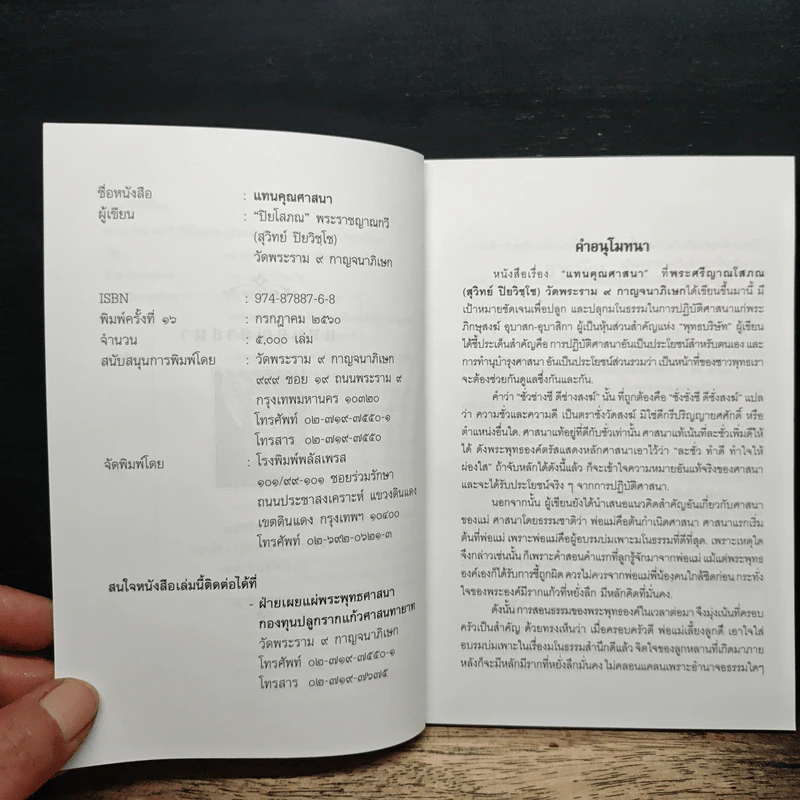 ชื่อหนังสือ : แทนคุณศาสนา
ผู้เขียน : "ปิยโสภณ" พระราชญาณกวี
(สุวิทย์ ปิยวิชฺโช)
วัดพระราม ๙ กาญจนาภิเษก
ISBN : 974-87887-6-8
พิมพ์ครั้งที่ ๑๖ : กรกฎาคม ๒๕๖๐
จำนวน : ๕,๐๐๐ เล่ม
สนับสนุนการพิมพ์โดย : วัดพระราม ๙ กาญจนาภิเษก
๙๙๙ ซอย ๑๙ ถนนพระราม ๙
กรุงเทพมหานคร ๑๐๓๒๐
โทรศัพท์ ๐๒-๗๑๙-๗๕๕๐-๑
โทรสาร ๐๒-๗๑๙-๗๕๕๐
จัดพิมพ์โดย : โรงพิมพ์พลัสเพรส
๑๐๑/๙๙-๑๐๑ ซอยร่วมรักษา
ถนนประชาสงเคราะห์ แขวงดินแดง
เขตดินแดง กรุงเทพฯ ๑๐๔๐๐
โทรศัพท์ ๐๒-๖๙๒-๐๖๒๑-๓
สนใจหนังสือเล่มนี้ติดต่อได้ที่
- ฝ่ายเผยแผ่พระพุทธศาสนา
กองทุนปลูกรากแก้วศาสนทายาท
วัดพระราม ๙ กาญจนาภิเษก
โทรศัพท์ ๐๒-๗๑๙-๗๕๕๐-๑
โทรสาร ๐๒-๗๑๙-๗๖๗๕
คำอนุโมทนา
หนังสือเรื่อง "แทนคุณศาสนา" ที่พระศรีญาณโสภณ
(สุวิทย์ ปิยวิชฺโช) วัดพระราม ๙ กาญจนาภิเษกได้เขียนขึ้นมานี้ มี
เป้าหมายชัดเจนเพื่อปลูก และปลุกมโนธรรมในการปฏิบัติศาสนาแก่พระ
ภิกษุสงฆ์ อุบาสก-อุบาสิกา ผู้เป็นหุ้นส่วนสำคัญแห่ง "พุทธบริษัท" ผู้เขียน
ได้ชี้ประเด็นสำคัญคือ การปฏิบัติศาสนาอันเป็นประโยชน์สำหรับตนเอง และ
การทำนุบำรุงศาสนา อันเป็นประโยชน์ส่วนรวมว่า เป็นหน้าที่ของชาวพุทธเรา
จะต้องช่วยกันดูแลซึ่งกันและกัน.
คำว่า "ชั่วช่างชี ดีช่างสงฆ์" นั้น ที่ถูกต้องคือ "ชั่วชั่งชี ดีชั่งสงฆ์" แปล
ว่า ความชั่วและความดี เป็นตราชั่งวัดสงฆ์ มิใช่ดีกรีปริญญายศศักดิ์ หรือ
ตำแหน่งอื่นใด. ศาสนาแท้อยู่ที่ดีกับชั่วเท่านั้น ศาสนาแท้เน้นที่ละชั่วเพิ่มดีให้
ได้ ดังพระพุทธองค์ตรัสแสดงหลักศาสนาเอาไว้ว่า "ละชั่ว ทำดี ทำใจให้
ผ่องใส" ถ้าจับหลักได้ดังนี้แล้ว ก็จะเข้าใจความหมายอันแท้จริงของศาสนา
และจะได้รับประโยชน์จริง ๆ จากการปฏิบัติศาสนา.
นอกจากนั้น ผู้เขียนยังได้นำเสนอแนวคิดสำคัญอันเกี่ยวกับศาสนา
ของแม่ ศาสนาโดยธรรมชาติว่า พ่อแม่คือต้นกำเนิดศาสนา ศาสนาแรกเริ่ม
ต้นที่พ่อแม่ เพราะพ่อแม่คือผู้อบรมบ่มเพาะมโนธรรมที่ดีที่สุด. เพราะเหตุใด
จึงกล่าวเช่นนั้น ก็เพราะคำสอนคำแรกที่ลูกรู้จักมาจากพ่อแม่ แม้แต่พระพุทธ
องค์เองก็ได้รับการชี้ถูกผิด ควรไม่ควรจากพ่อแม่พี่น้องคนใกล้ชิดก่อน กระทั่ง
ใจของพระองค์มีรากแก้วที่หยั่งลึก มีหลักคิดที่มั่นคง.
ดังนั้น การสอนธรรมของพระพุทธองค์ในเวลาต่อมา จึงมุ่งเน้นที่ครอบ
ครัวเป็นสำคัญ ด้วยทรงเห็นว่า เมื่อครอบครัวดี พ่อแม่เลี้ยงลูกดี เอาใจใส่
อบรมบ่มเพาะในเรื่องมโนธรรมสำนึกดีแล้ว จิตใจของลูกหลานที่เกิดมาภาย
หลังก็จะมีหลักมีรากที่หยั่งลึกมั่นคง ไม่คลอนแคลนเพราะอำนาจอธรรมใดๆ